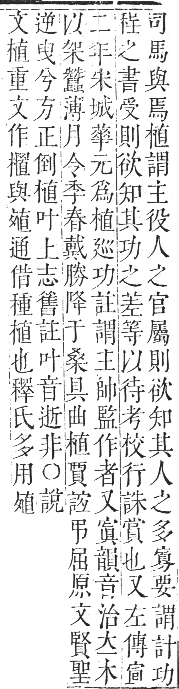 司馬與焉植謂主役人之官屬則欲知其人之多寡要謂計功
程之書受則欲知其功之差等以待考校行誅賞也又左傳宣
二年宋城華元爲植廵功註謂主帥監作者又寘韻音治立木
以架蠶薄月令季春戴勝降于桑具曲植賈誼弔屈原文賢聖
逆曳兮方正倒植叶上志舊註叶音逝非○說
文植重文作㯰與殖通借種植也釋氏多用殖